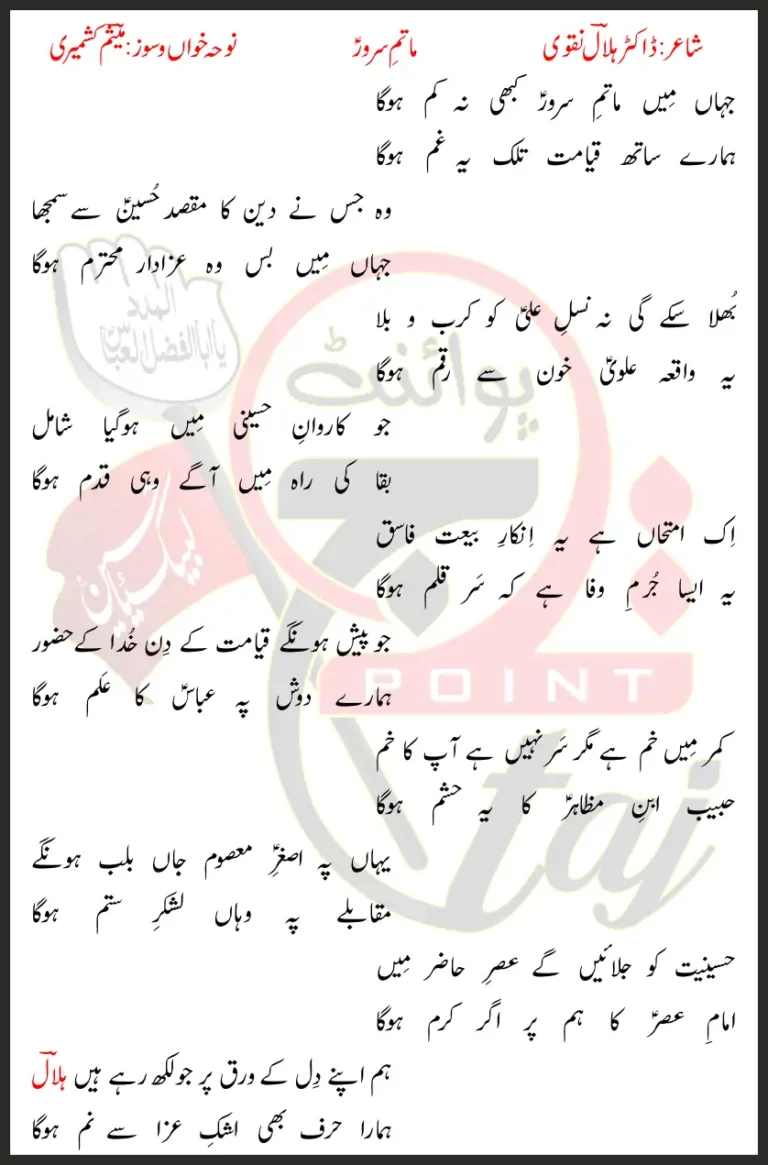 شاعر: ڈاکٹر ہلالؔ نقوی ماتمِ سرورؑ نوحہ خواں و سوز: میثمؔ کشمیری
جہاں مِیں ماتمِ سرورؑ کبھی نہ کم ہوگا
ہمارے ساتھ قیامت تلک یہ غم ہوگا
وہ جس نے دین کا مقصد حُسینؑ سے سمجھا
جہاں مِیں بس وہ عزادار محترم ہوگا
بُھلا سکے گی نہ نسلِ علیؑ کو کرب و بلا
یہ واقعہ علویؑ خون سے رقم ہوگا
جو کاروانِ حسینی مِیں ہوگیا شامل
بقا کی راہ مِیں آگے وہی قدم ہوگا
اِک امتحاں ہے یہ اِنکارِ بیعت فاسق
یہ ایسا جُرمِ وفا ہے کہ سَر قلم ہوگا
جو پیش ہونگے قیامت کے دِن خُدا کے حضور
ہمارے دوش پہ عباسؑ کا علَم ہوگا
کمر مِیں خم ہے مگر سَر نہیں ہے آپ کا خم
حبیب ابنِ مظاہرؑ کا یہ حشم ہوگا
یہاں پہ اصغرِؑ معصوم جاں بلب ہونگے
مقابلے پہ وہاں لشکرِ ستم ہوگا
حسینیت کو جلائیں گے عصرِ حاضر مِیں
امامِ عصرؑ کا ہم پر اگر کرم ہوگا
ہم اپنے دِل کے ورق پر جو لکھ رہے ہیں ہلالؔ
ہمارا حرف بھی اشکِ عزا سے نم ہوگا
المدد
یا اباالفضل العباسؑ
لبیک یا حسینؑ
پوائنٹ
POINT
taj